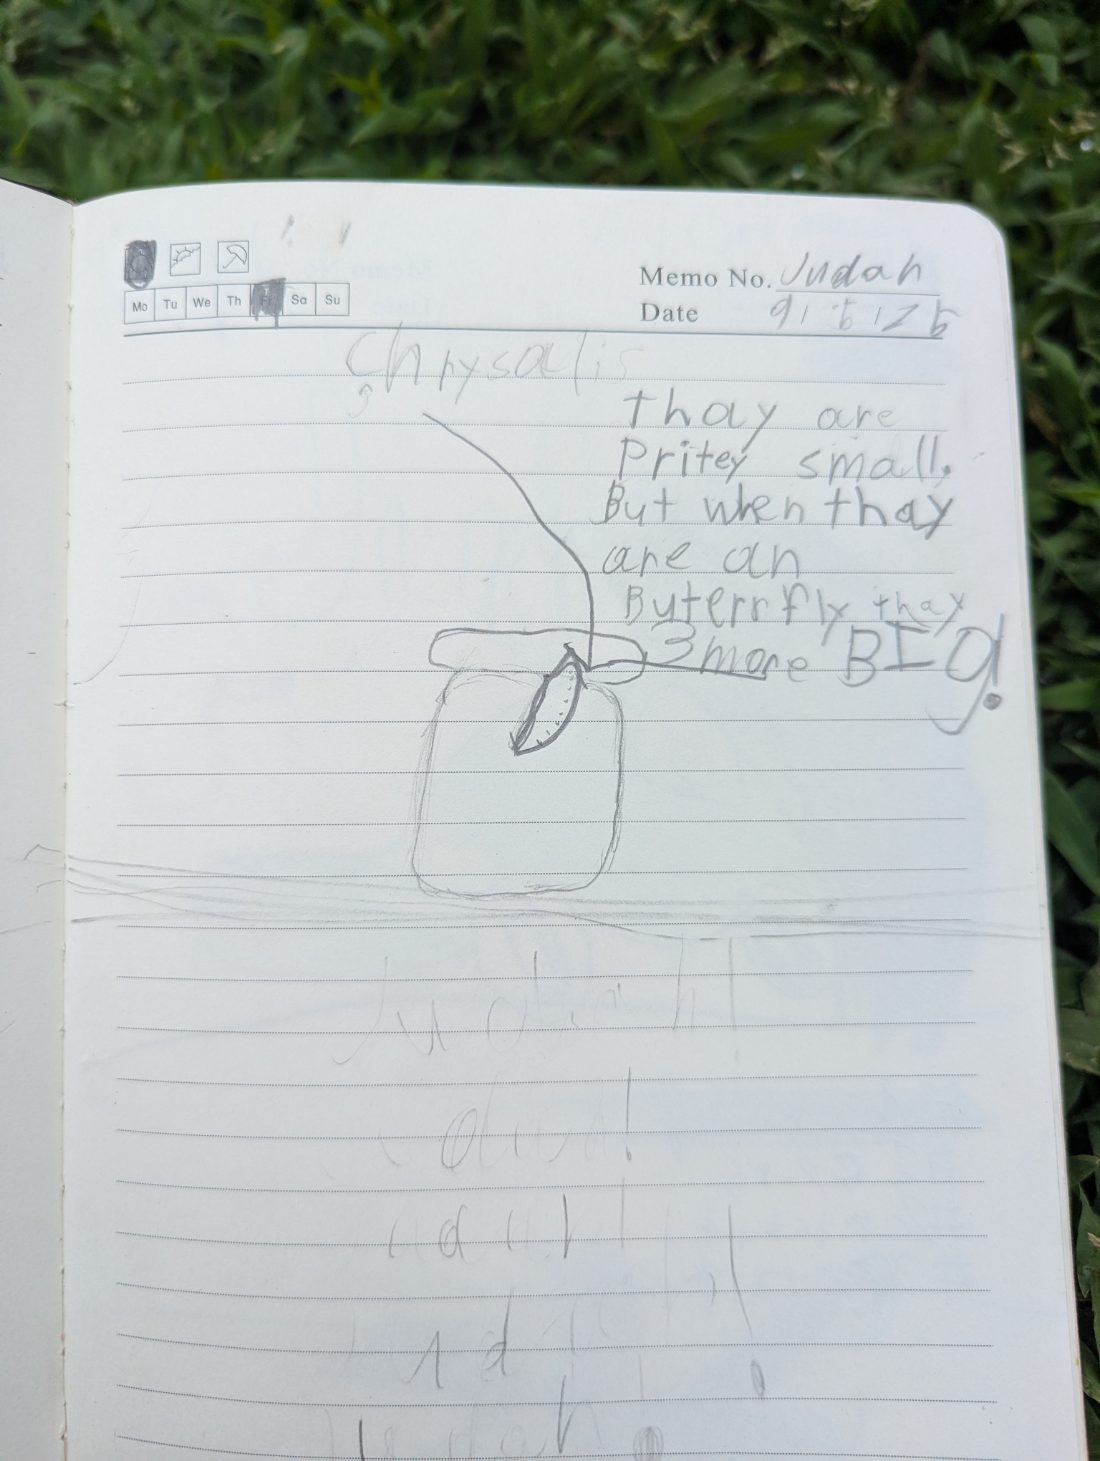 Memo No. Judah
Mo Tu We Th Fr Sa Su
Date 9/5/25
Chrysalis
thay are
Pritey small.
But when thay
are an
Buterrfly thay
3 more BIg!